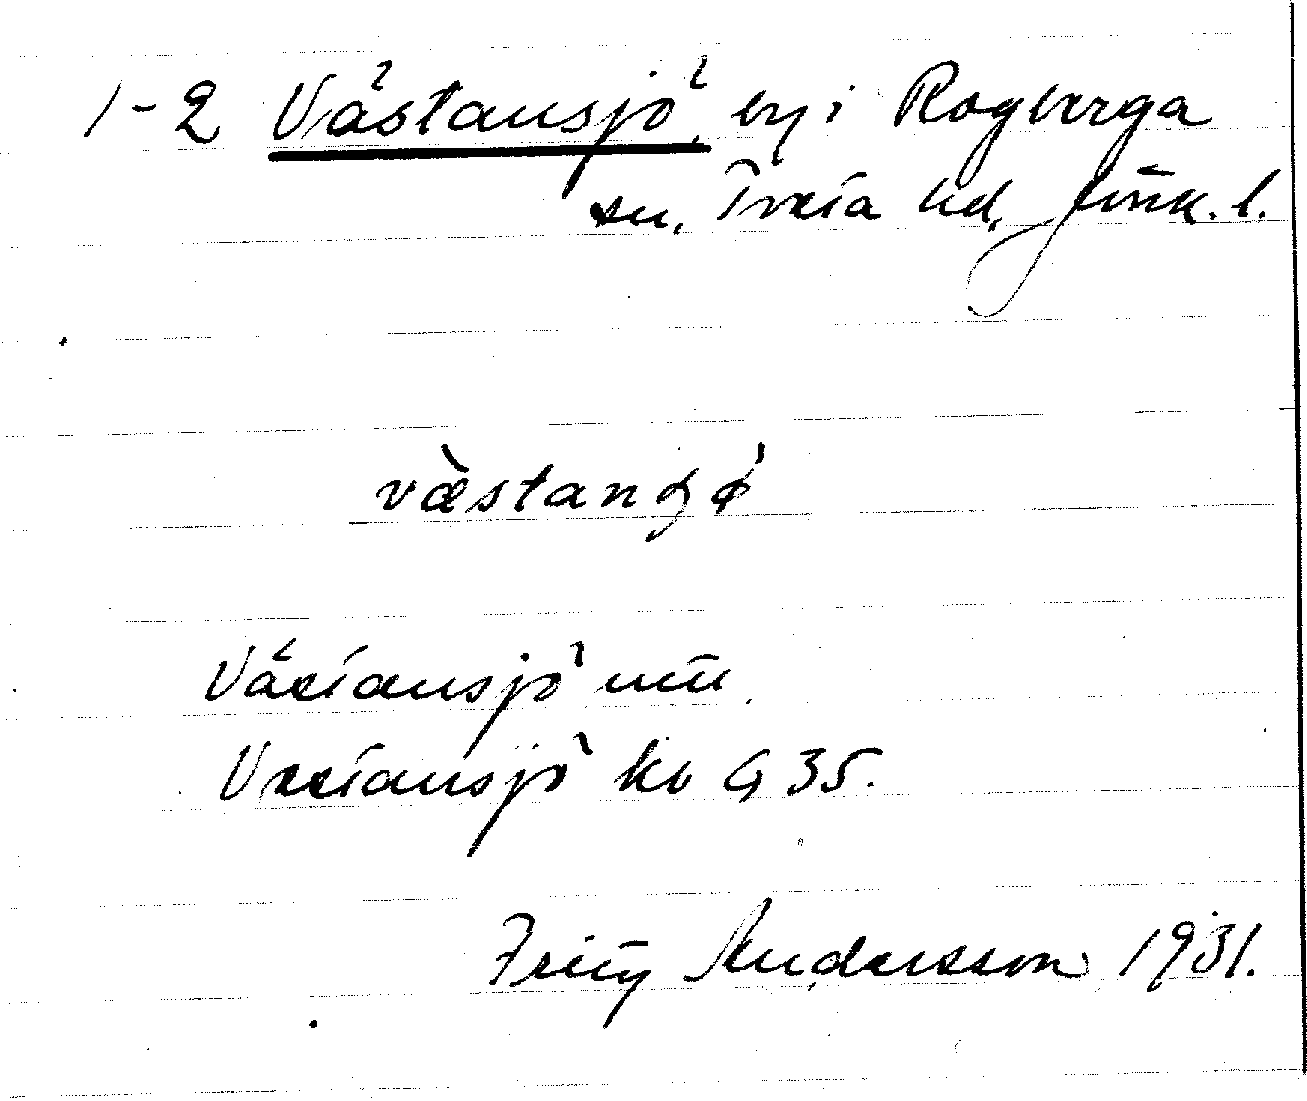 1-2 Västansjö, by i Rogberga
sn, Tveta hd, Jönk. l.
västanʒø
Västansjö mtl
Västansjö kb G 35.
Fritz Andersson 1931.